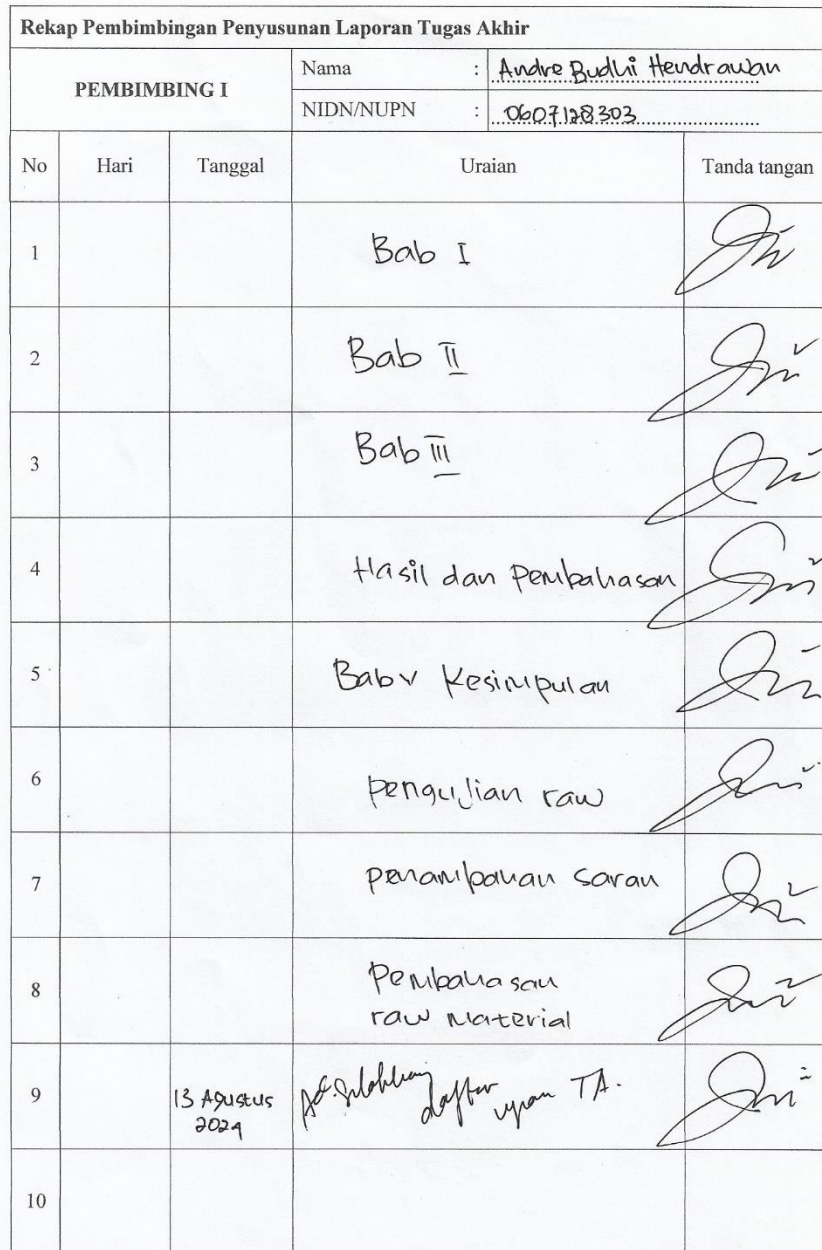 Rekap Pembimbingan Penyusunan Laporan Tugas Akhir
PEMBIMBING I
Nama : Andre Budhi Hendrawan
NIDN/NUPN : 0607128303
No Hari Tanggal Uraian Tanda tangan
1 Bab I
2 Bab II
3 Bab III
4 Hasil dan Pembahasan
5 Bab V Kesimpulan
6 pengujian raw
7 penambahan saran
8 Pembahasan
raw material
9 13 Agustus
2024
Silahkan daftar ujian TA.
10